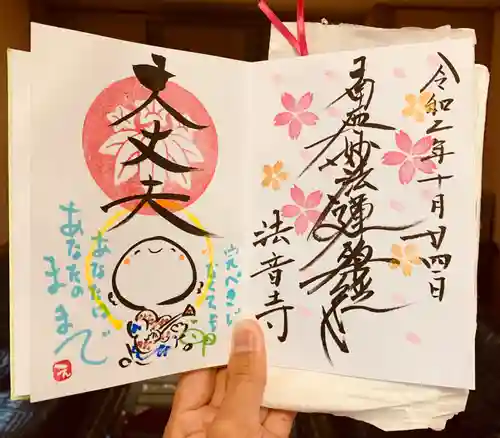 令和二年十月廿四日
南無妙法蓮華経
法音寺
大丈夫
完ぺきじ
なくても
あなたは
あなたの
ままで